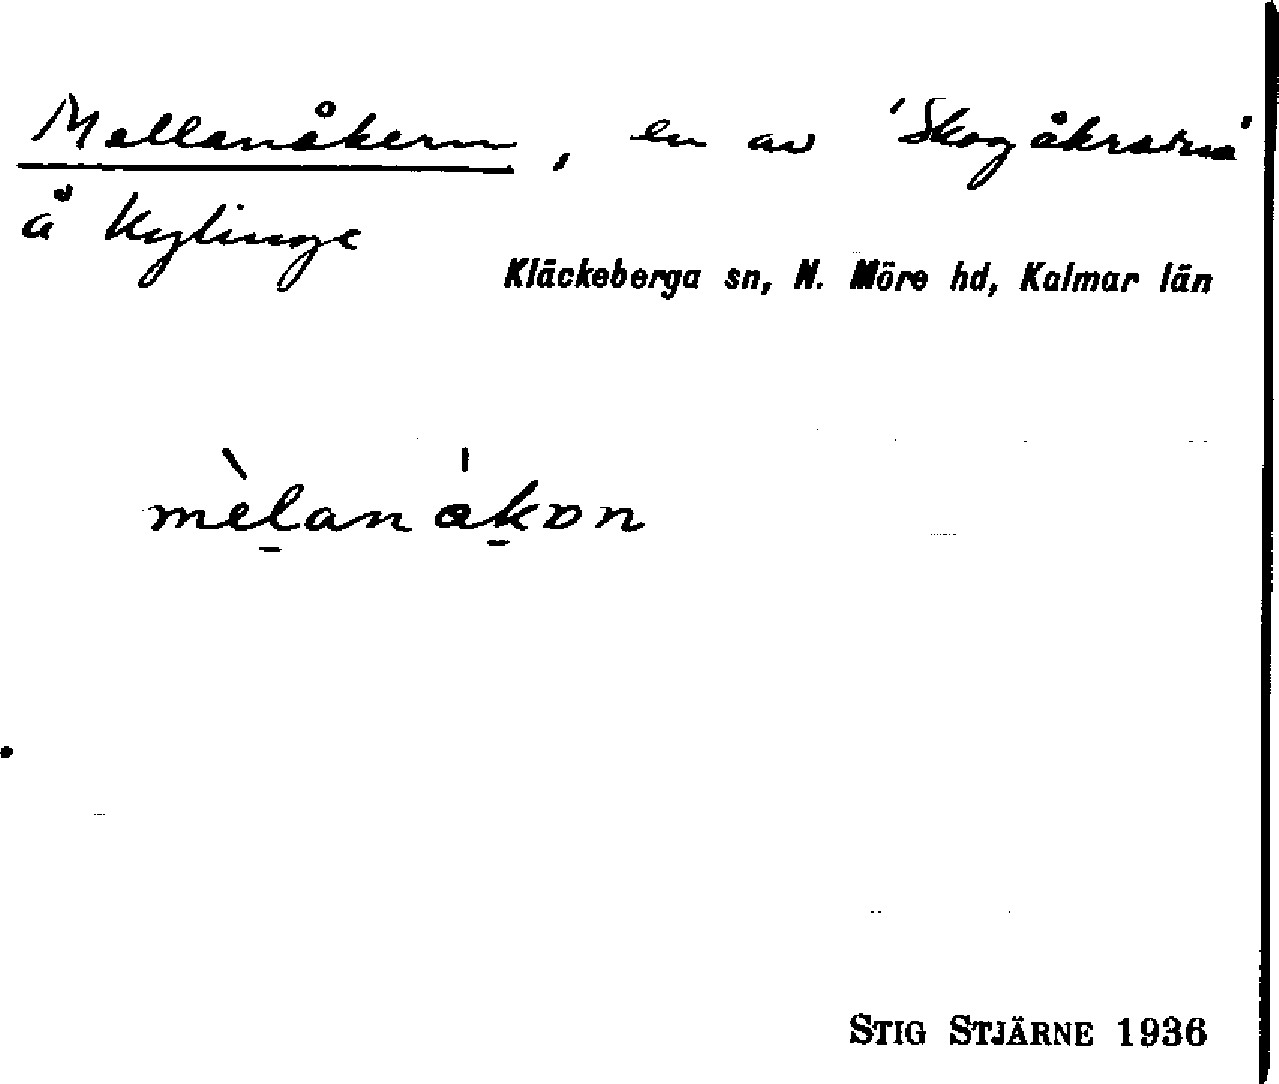 Mellanåkern, en av 'Skogåkrarna'
å Kylinge
Kläckeberga sn, N. Möre hd, Kalmar län
mèlanåkon
STIG STJÄRNE 1936